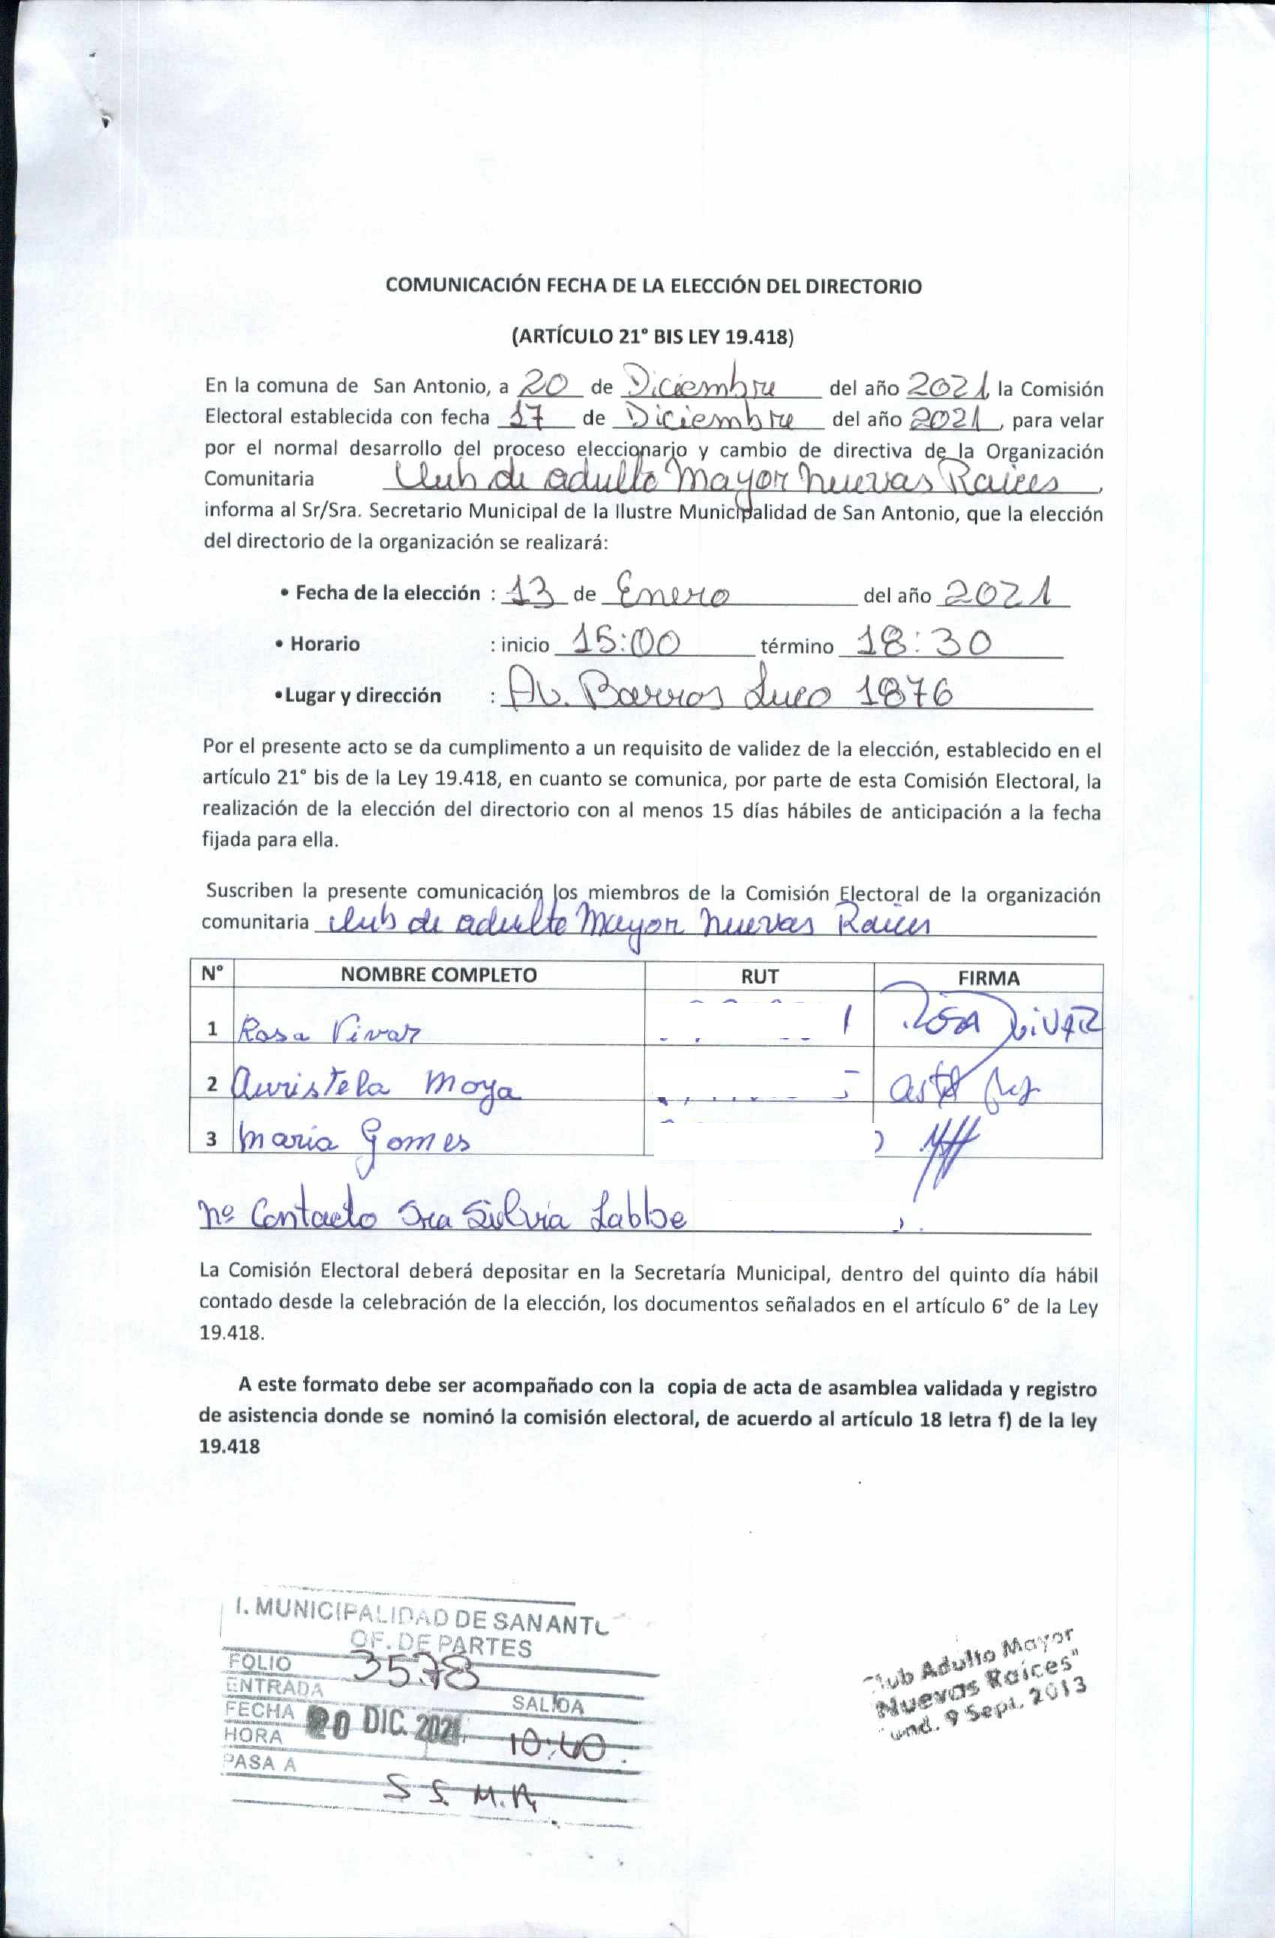 COMUNICACIÓN FECHA DE LA ELECCIÓN DEL DIRECTORIO
(ARTÍCULO 21° BIS LEY 19.418)
En la comuna de San Antonio, a 20 de Diciembre del año 2021, la Comisión
Electoral establecida con fecha 17 de Diciembre del año 2021, para velar
por el normal desarrollo del proceso eleccionario y cambio de directiva de la Organización
Comunitaria Club de adulto Mayor Nuevas Raices,
informa al Sr/Sra. Secretario Municipal de la Ilustre Municipalidad de San Antonio, que la elección
del directorio de la organización se realizará:
• Fecha de la elección : 13 de Enero del año 2021
• Horario : inicio 15:00 término 18:30
• Lugar y dirección : Av. Barros Luco 1876
Por el presente acto se da cumplimento a un requisito de validez de la elección, establecido en el
artículo 21° bis de la Ley 19.418, en cuanto se comunica, por parte de esta Comisión Electoral, la
realización de la elección del directorio con al menos 15 días hábiles de anticipación a la fecha
fijada para ella.
Suscriben la presente comunicación los miembros de la Comisión Electoral de la organización
comunitaria club de adulto Mayor Nuevas Raices
N° NOMBRE COMPLETO RUT FIRMA
1 Rosa Vivar ROSA VIVAR
2 Auristela Moya
3 Maria Gomes
Nº Contacto Sra Silvia Labbe
La Comisión Electoral deberá depositar en la Secretaría Municipal, dentro del quinto día hábil
contado desde la celebración de la elección, los documentos señalados en el artículo 6° de la Ley
19.418.
A este formato debe ser acompañado con la copia de acta de asamblea validada y registro
de asistencia donde se nominó la comisión electoral, de acuerdo al artículo 18 letra f) de la ley
19.418
I. MUNICIPALIDAD DE SAN ANTO
OF. DE PARTES
FOLIO 3578
ENTRADA SALIDA
FECHA 20 DIC. 2021
HORA 10:40
PASA A
S S. M.A,
Club Adulto Mayor
Nuevas Raíces"
Fund. 9 Sept. 2013